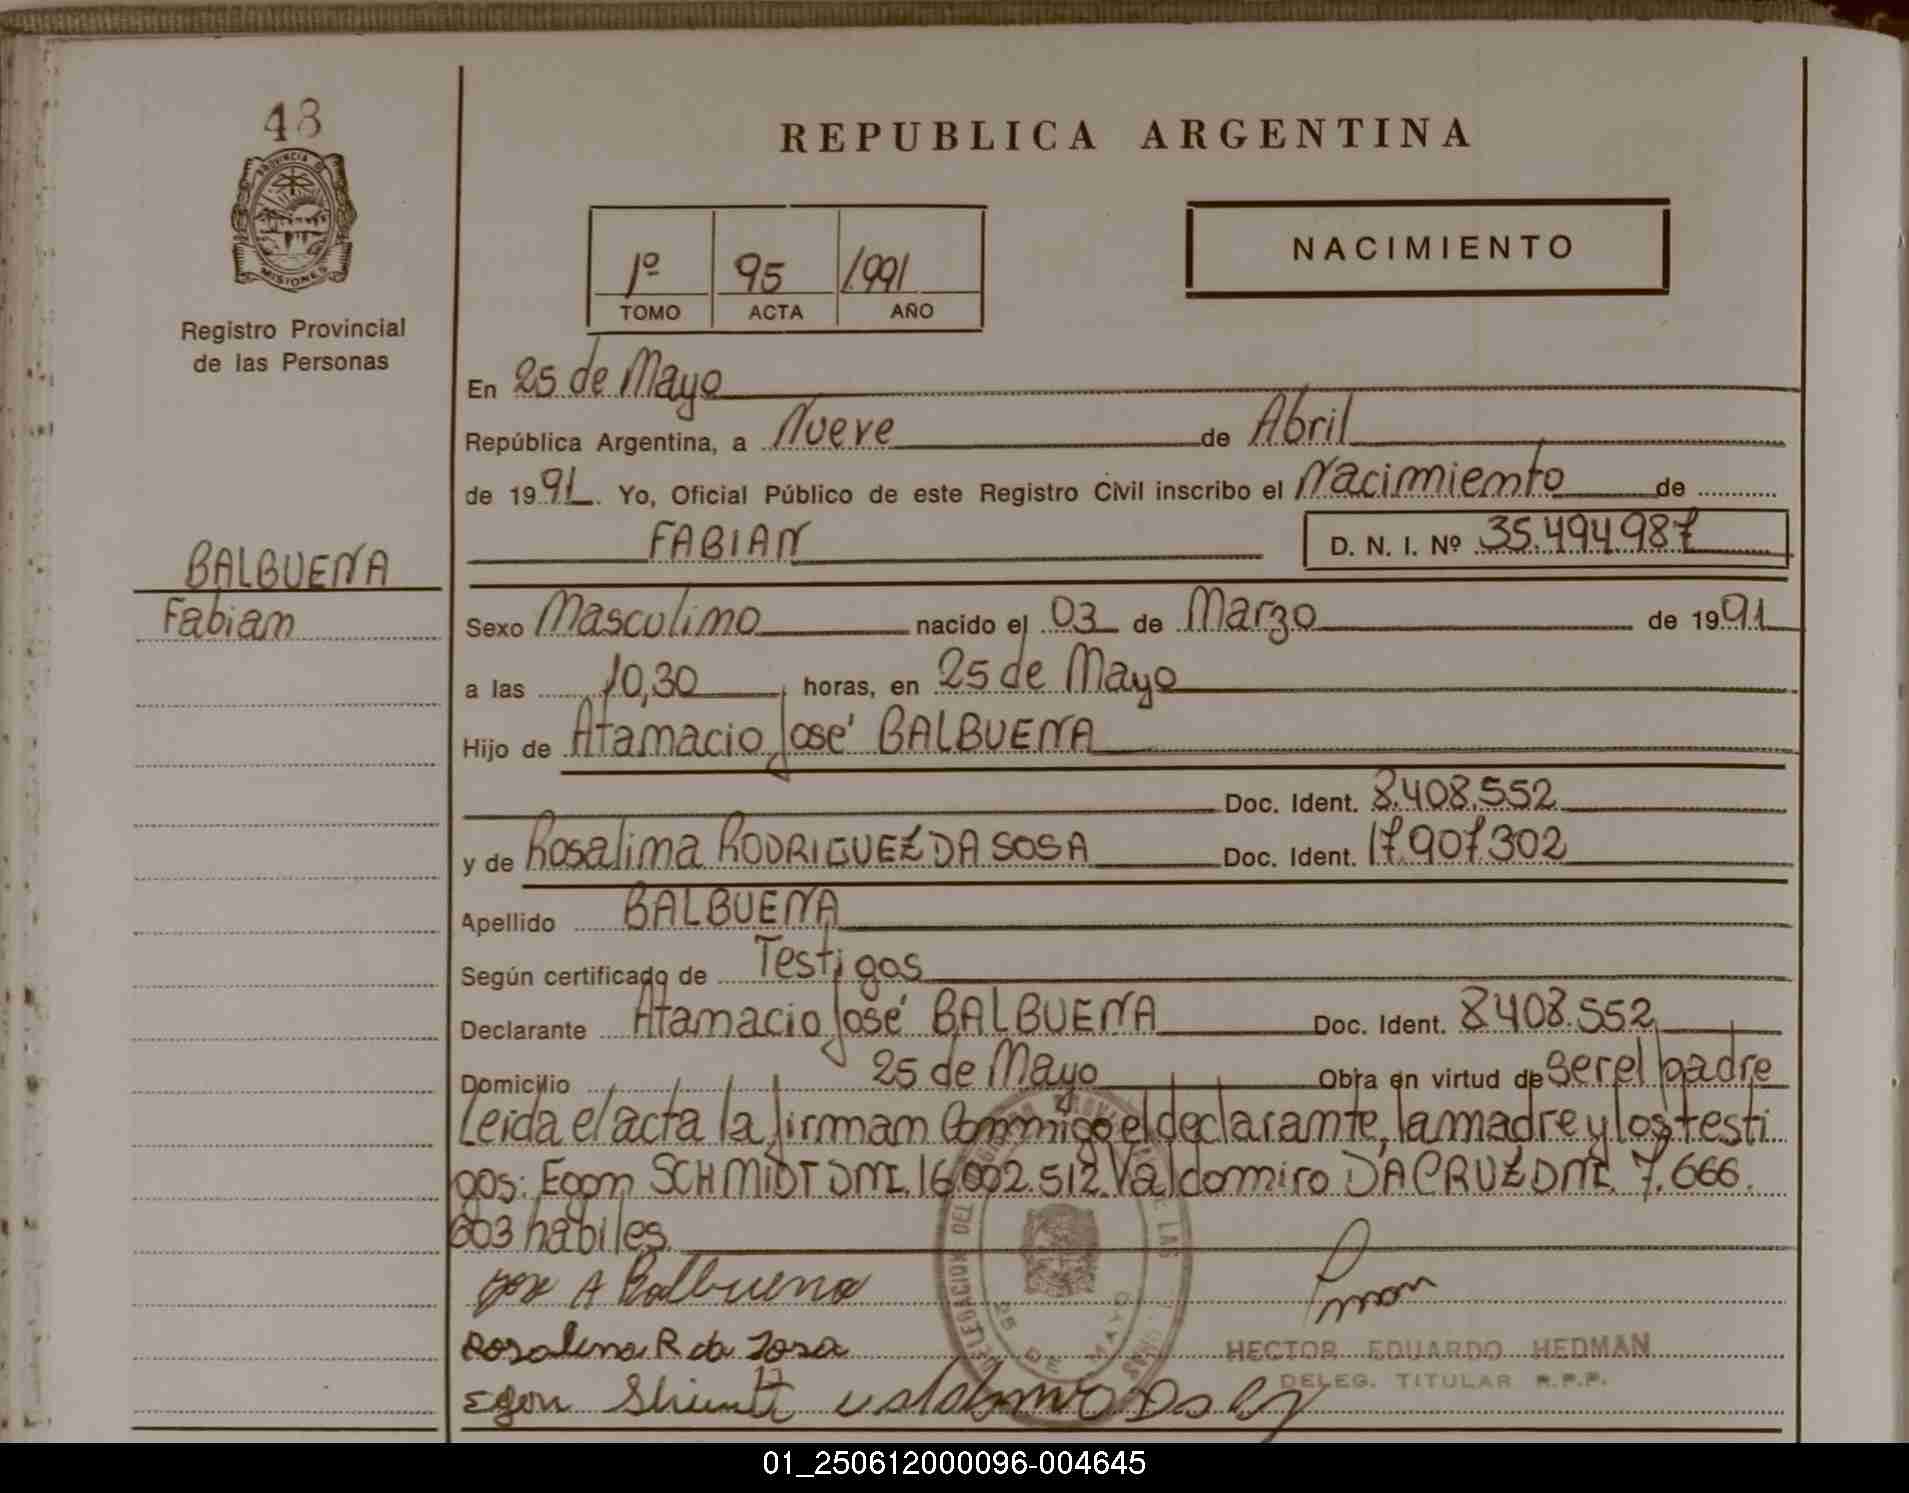 48
PROVINCIA DE
MISIONES
Registro Provincial
de las Personas
BALBUENA
Fabian
REPUBLICA ARGENTINA
1º 95 1.991
TOMO ACTA AÑO
NACIMIENTO
En 25 de Mayo
República Argentina, a Nueve de Abril
de 1991. Yo, Oficial Público de este Registro Civil inscribo el Nacimiento de
FABIAN D. N. I. Nº 35.494.987
Sexo Masculino nacido el 03 de Marzo de 1991
a las 10,30 horas, en 25 de Mayo
Hijo de Atanacio José BALBUENA
Doc. Ident. 8.408.552
y de Rosalina RODRIGUEZ DA SOSA Doc. Ident. 17.907.302
Apellido BALBUENA
Según certificado de Testigos
Declarante Atanacio José BALBUENA Doc. Ident. 8408.552
Domicilio 25 de Mayo Obra en virtud de ser el padre
Leida el acta la firman Conmigo el declarante, la madre y los testi
gos: Egon SCHMIDT DNI. 16.002.512. Valdomiro DA CRUZ DNI. 7.666.
603 habiles.
A Balbuena
Rosalina R da Sosa
HECTOR EDUARDO HEDMAN
DELEG. TITULAR R.P.P.
Egon
DELEGACION DEL REGISTRO PROVINCIAL DE LAS
25 DE MAYO
01_250612000096-004645